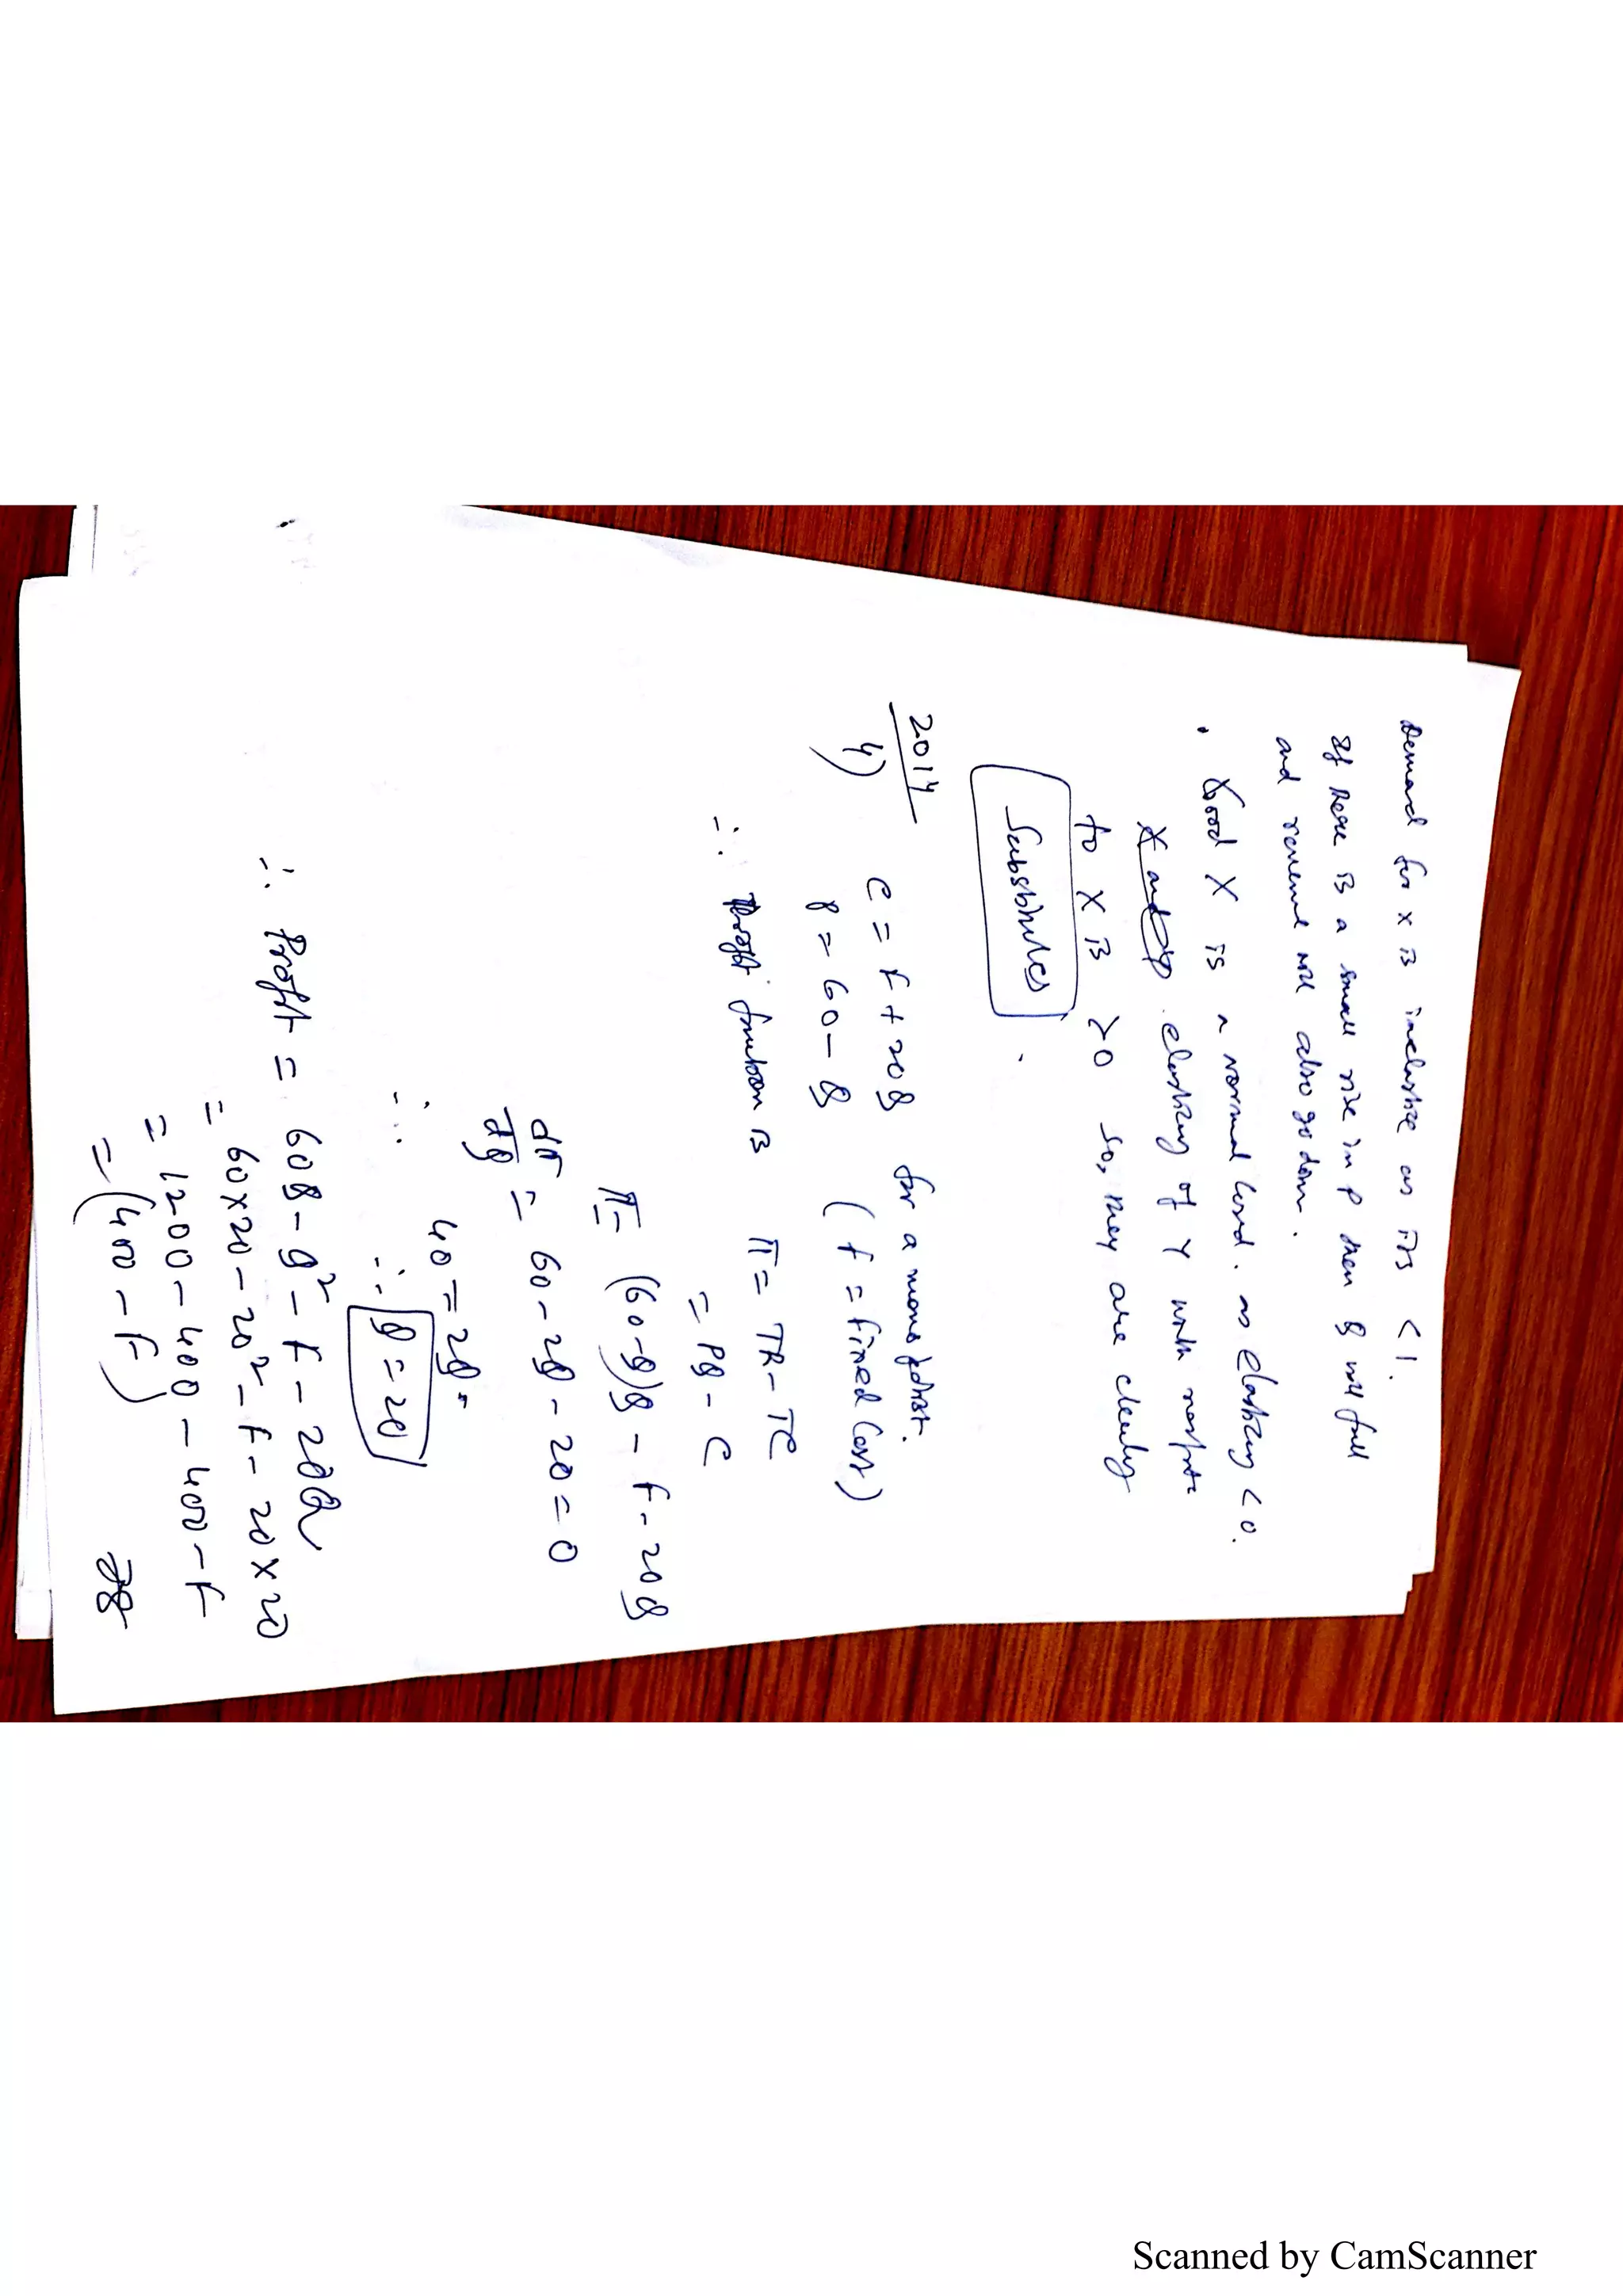 Demand for X is inelastic as its < 1.
If there is a small rise in P then q will fall
and revenue will also go down.
. Good X is a normal Good. as elasticity < 0.
elasticity of Y with respect
to X is > 0 so, they are clearly
Substitutes .
2014
4) C = F + 20q for a monopolist.
P = 60 - q ( F = Fixed Cost )
∴ Profit function is π = TR - TC
= Pq - C
π = (60-q)q - F - 20q
dπ/dq = 60 - 2q - 20 = 0
40 = 2q.
∴ ∴ q = 20
∴ Profit = 60q - q² - F - 20Q
= 60×20 - 20² - F - 20×20
= 1200 - 400 - 400 - F
= (400 - F)
Scanned by CamScanner